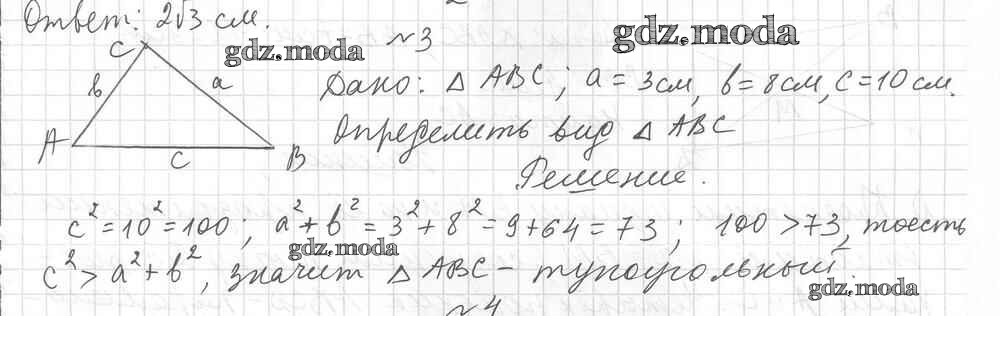 Ответ: 2√3 см.
gdz.moda
gdz.moda
№3
C
в
a
A
c
B
Дано: △ ABC; a = 3 см, в = 8 см, c = 10 см.
Определить вид △ ABC
Решение.
c² = 10² = 100; a² + в² = 3² + 8² = 9 + 64 = 73; 100 > 73, тоесть
gdz.moda
c² > a² + в², значит △ ABC – тупоугольный.
gdz.moda
№4